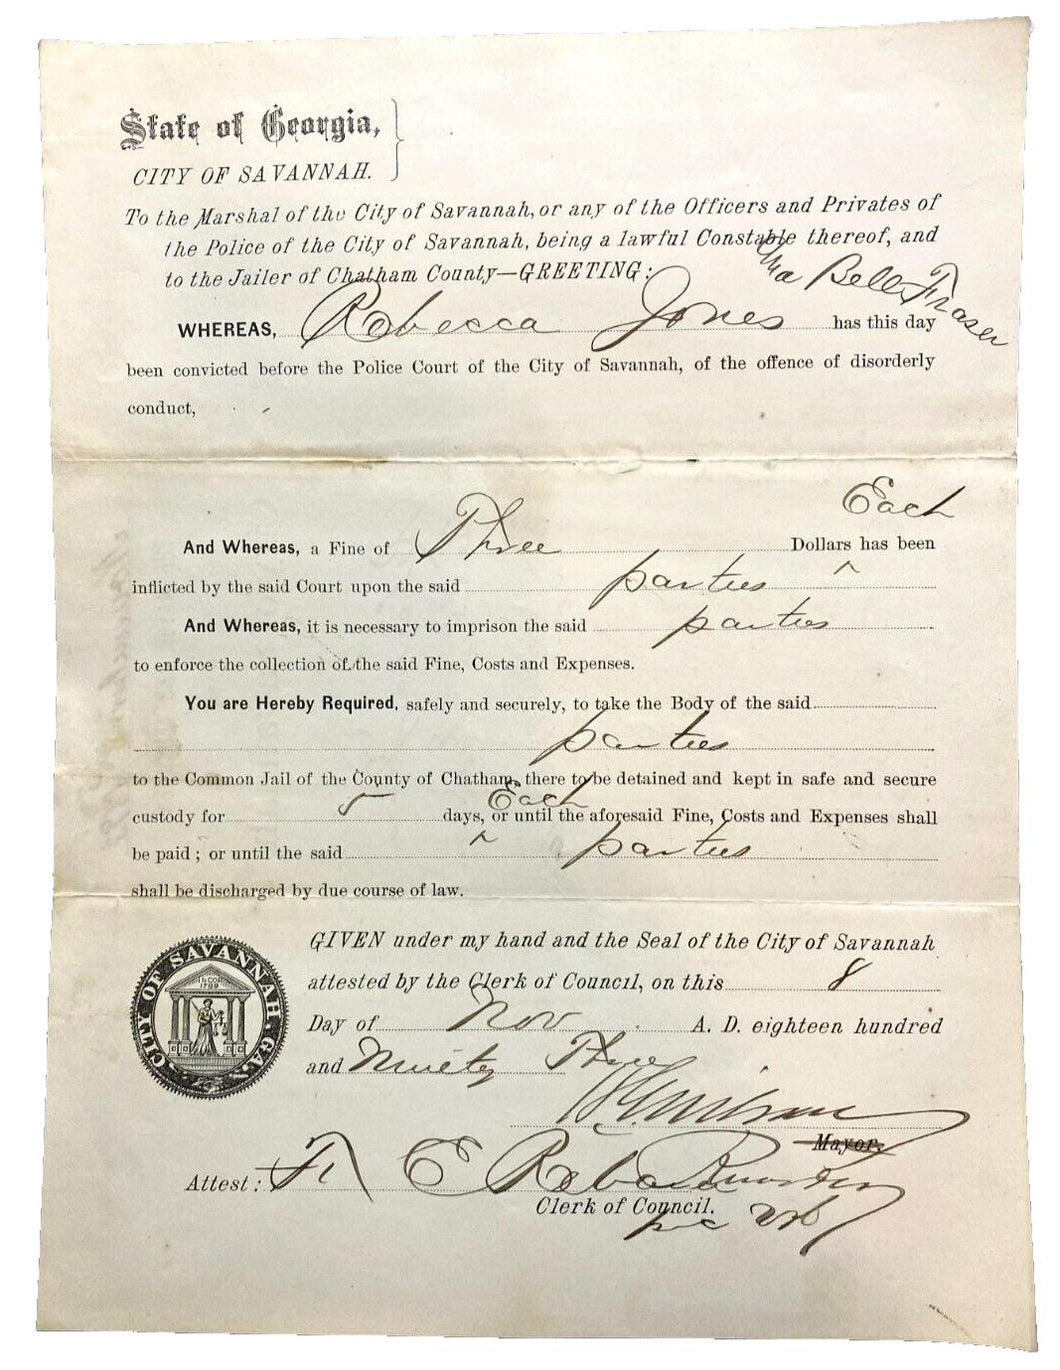 State of Georgia,
CITY OF SAVANNAH.
To the Marshal of the City of Savannah, or any of the Officers and Privates of
the Police of the City of Savannah, being a lawful Constable thereof, and
to the Jailer of Chatham County—GREETING:
Bell Fraser
WHEREAS, Rebecca Jones has this day
been convicted before the Police Court of the City of Savannah, of the offence of disorderly
conduct,
Each
And Whereas, a Fine of Three Dollars has been
inflicted by the said Court upon the said parties ^
And Whereas, it is necessary to imprison the said parties
to enforce the collection of the said Fine, Costs and Expenses.
You are Hereby Required, safely and securely, to take the Body of the said
parties
to the Common Jail of the County of Chatham, there to be detained and kept in safe and secure
Each
custody for 5 days, or until the aforesaid Fine, Costs and Expenses shall
^
be paid; or until the said parties
shall be discharged by due course of law.
GIVEN under my hand and the Seal of the City of Savannah
attested by the Clerk of Council, on this 8
Day of Nov A. D. eighteen hundred
and Ninety Three
Mayor.
Attest:
Clerk of Council.
CITY OF SAVANNAH, GA.
INCOR
1789